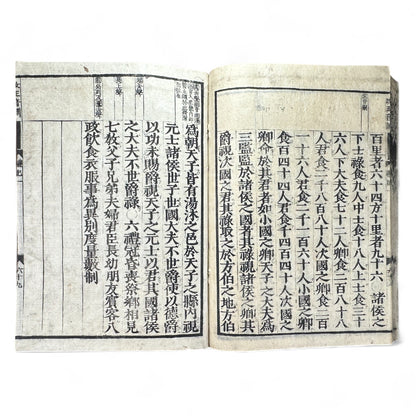 百里者六十四方十里者九十六　諸侯之
下士祿食九人中士食十八人上士食三十
六人下大夫食七十二人卿食二百八十八
人君食二千八百八十人次國之卿食二百
一十六人君食二千一百六十人小國之卿
食百四十四人君食千四百四十人次國之
卿命於其君者如小國之卿天子之大夫爲
三監監於諸侯之國者其祿視諸侯之卿其
爵視次國之君其祿取之於方伯之地方伯
爲朝天子皆有湯沐之邑於天子之縣內視
元士諸侯世子世國大夫不世爵使以德爵
以功未賜爵視天子之元士以君其國諸侯
之大夫不世爵祿　六禮冠昏喪祭鄉相見
七教父子兄弟夫婦君臣長幼朋友賓客八
政飲食衣服事爲異別度量數制
六十九